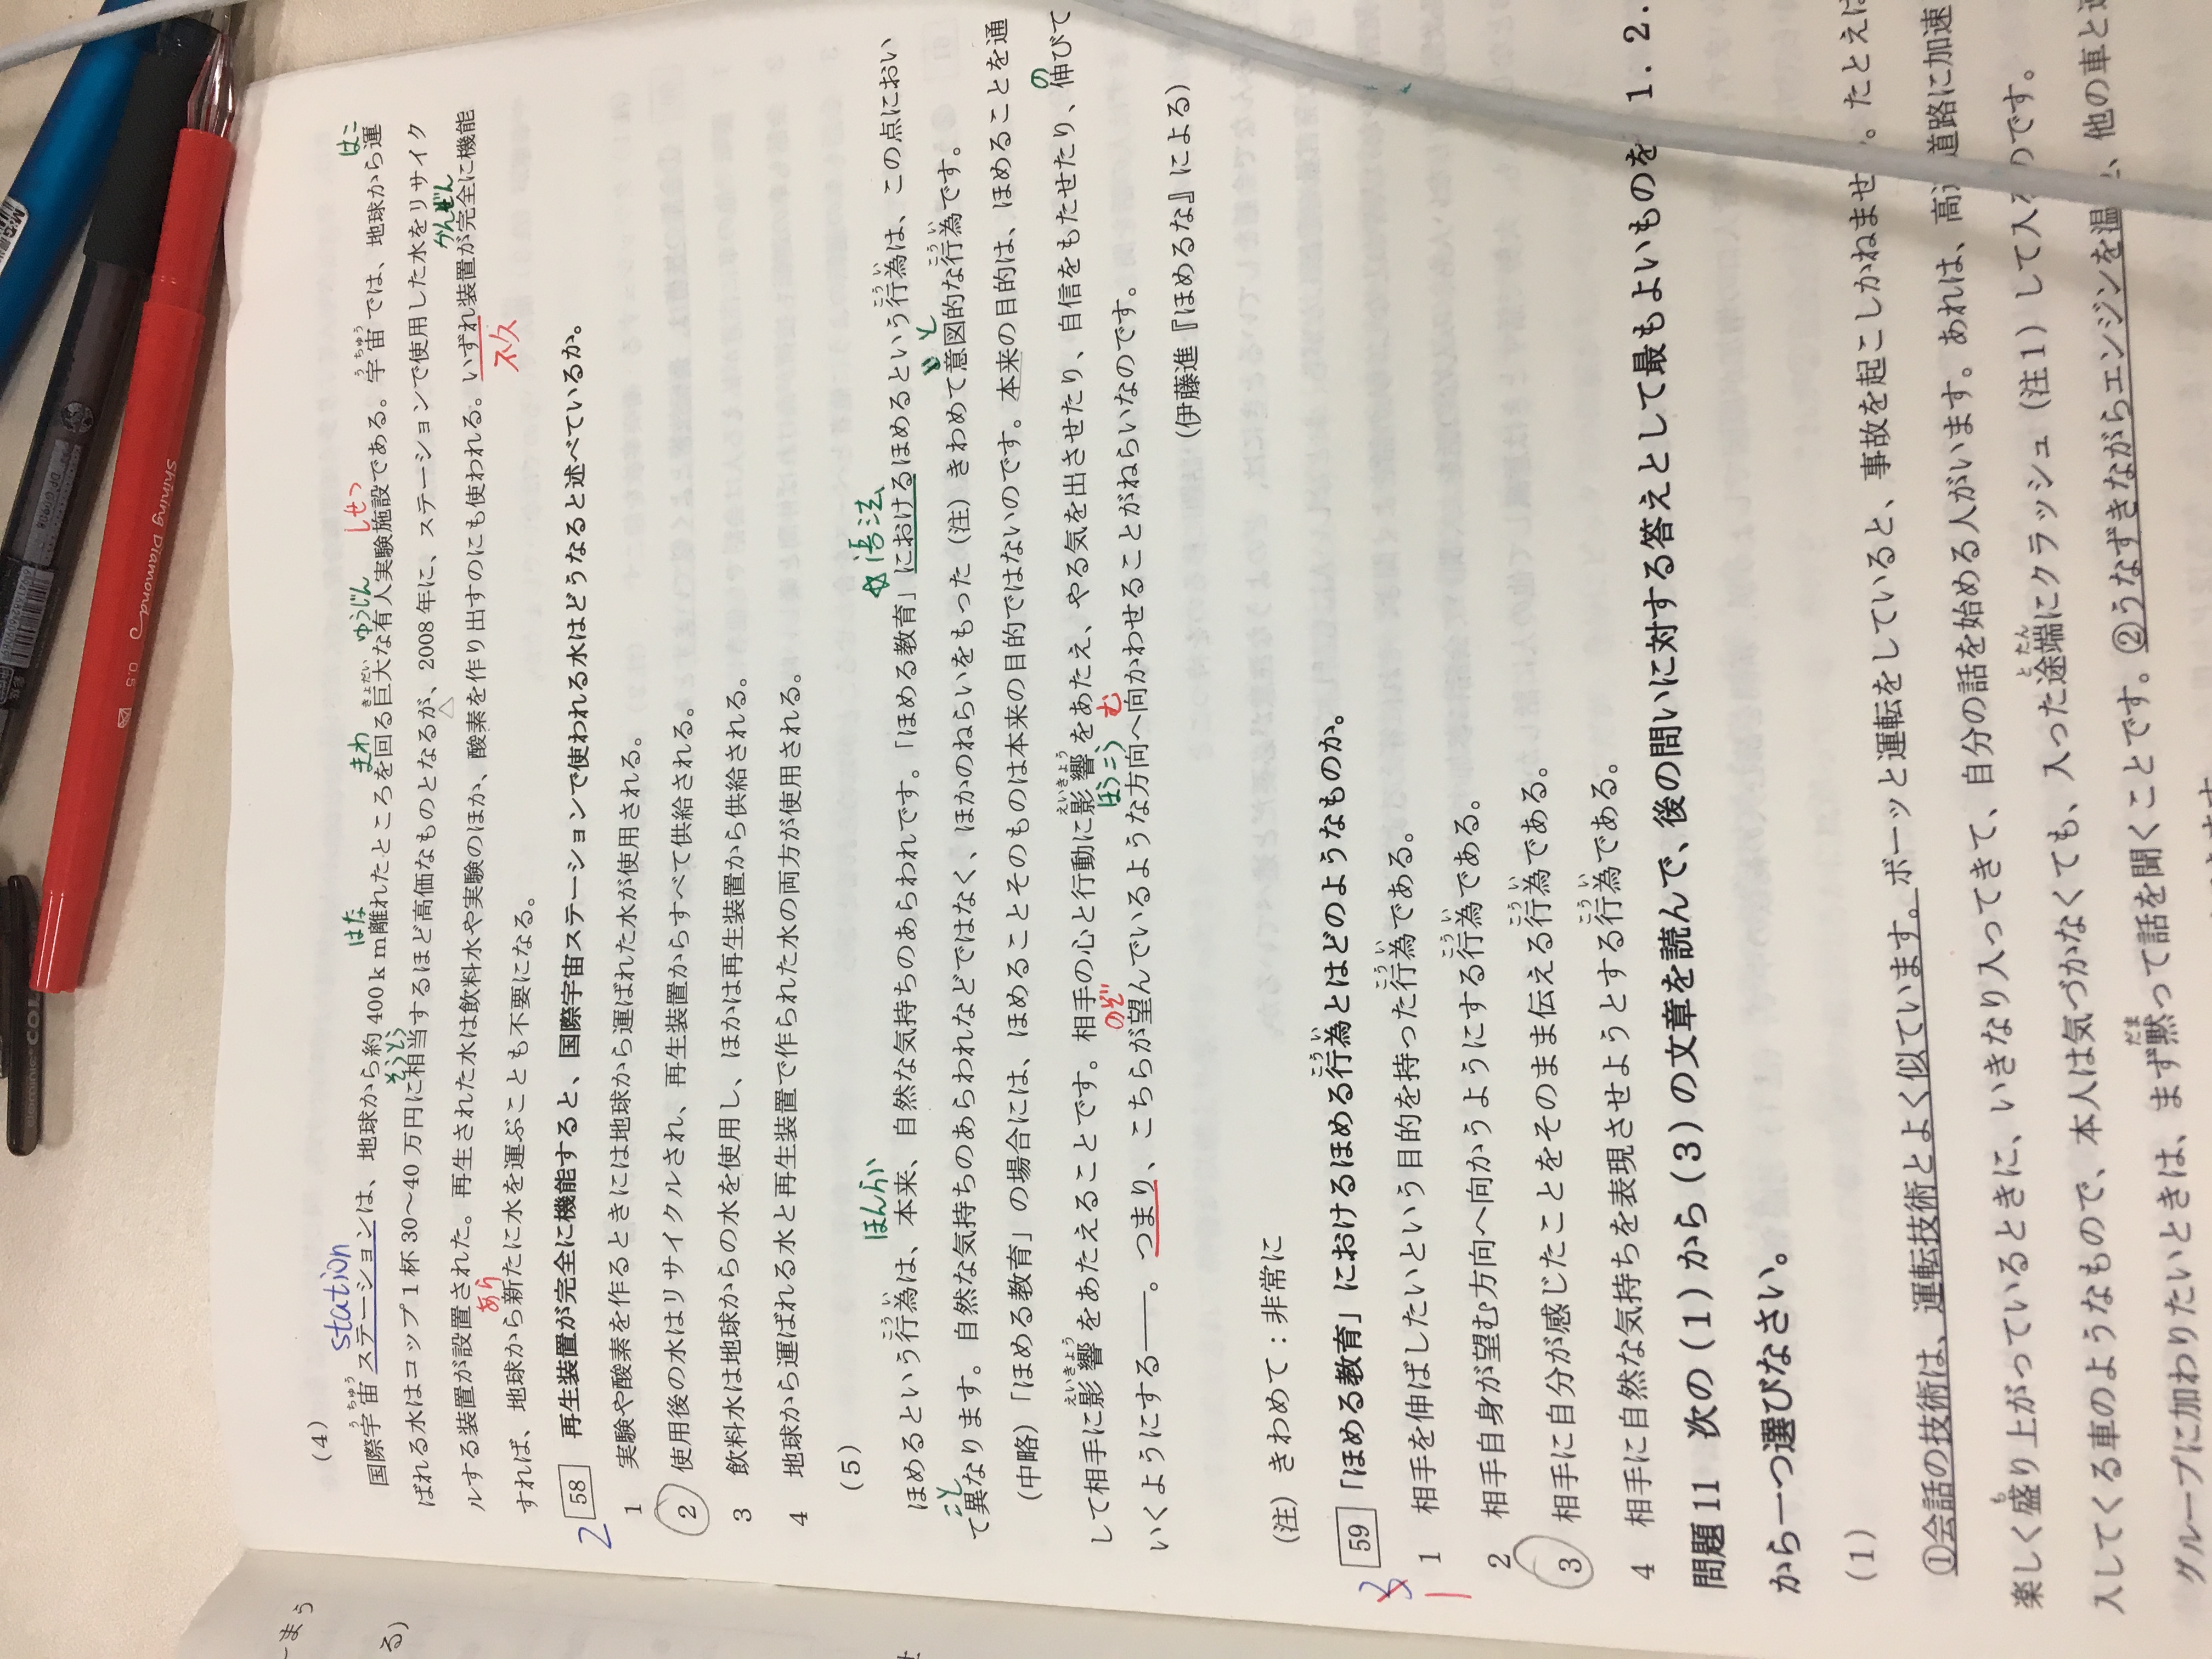 (4)
station
国際宇宙ステーションは、地球から約400km離れたところを回る巨大な有人実験施設である。宇宙では、地球から運
ばれる水はコップ1杯30〜40万円に相当するほど高価なものとなるが、2008年に、ステーションで使用した水をリサイク
ルする装置が設置された。再生された水は飲料水や実験のほか、酸素を作り出すのにも使われる。いずれ装置が完全に機能
すれば、地球から新たに水を運ぶことも不要になる。
58 再生装置が完全に機能すると、国際宇宙ステーションで使われる水はどうなると述べているか。
1 実験や酸素を作るときには地球から運ばれた水が使用される。
2 使用後の水はリサイクルされ、再生装置からすべて供給される。
3 飲料水は地球からの水を使用し、ほかは再生装置から供給される。
4 地球から運ばれる水と再生装置で作られた水の両方が使用される。
(5)
ほめるという行為は、本来、自然な気持ちのあらわれです。「ほめる教育」におけるほめるという行為は、この点におい
て異なります。自然な気持ちのあらわれなどではなく、ほかのねらいをもった(注)きわめて意図的な行為です。
(中略)「ほめる教育」の場合には、ほめることそのものは本来の目的ではないのです。本来の目的は、ほめることを通
して相手に影響をあたえることです。相手の心と行動に影響をあたえ、やる気を出させたり、自信をもたせたり、伸びて
いくようにする――。つまり、こちらが望んでいるような方向へ向かわせることがねらいなのです。
(伊藤進『ほめるな』による)
(注)きわめて:非常に
59 「ほめる教育」におけるほめる行為とはどのようなものか。
1 相手を伸ばしたいという目的を持った行為である。
2 相手自身が望む方向へ向かうようにする行為である。
3 相手に自分が感じたことをそのまま伝える行為である。
4 相手に自然な気持ちを表現させようとする行為である。
問題11 次の(1)から(3)の文章を読んで、後の問いに対する答えとして最もよいものを 1. 2.
から一つ選びなさい。
(1)
①会話の技術は、運転技術とよく似ています。ボーッと運転をしていると、事故を起こしかねませ 。たとえは
楽しく盛り上がっているときに、いきなり入ってきて、自分の話を始める人がいます。あれは、高 道路に加速
入してくる車のようなもので、本人は気づかなくても、入った途端にクラッシュ(注1)して入 のです。
グループに加わりたいときは、まず黙って話を聞くことです。②うなずきながらエンジンを温 、他の車と